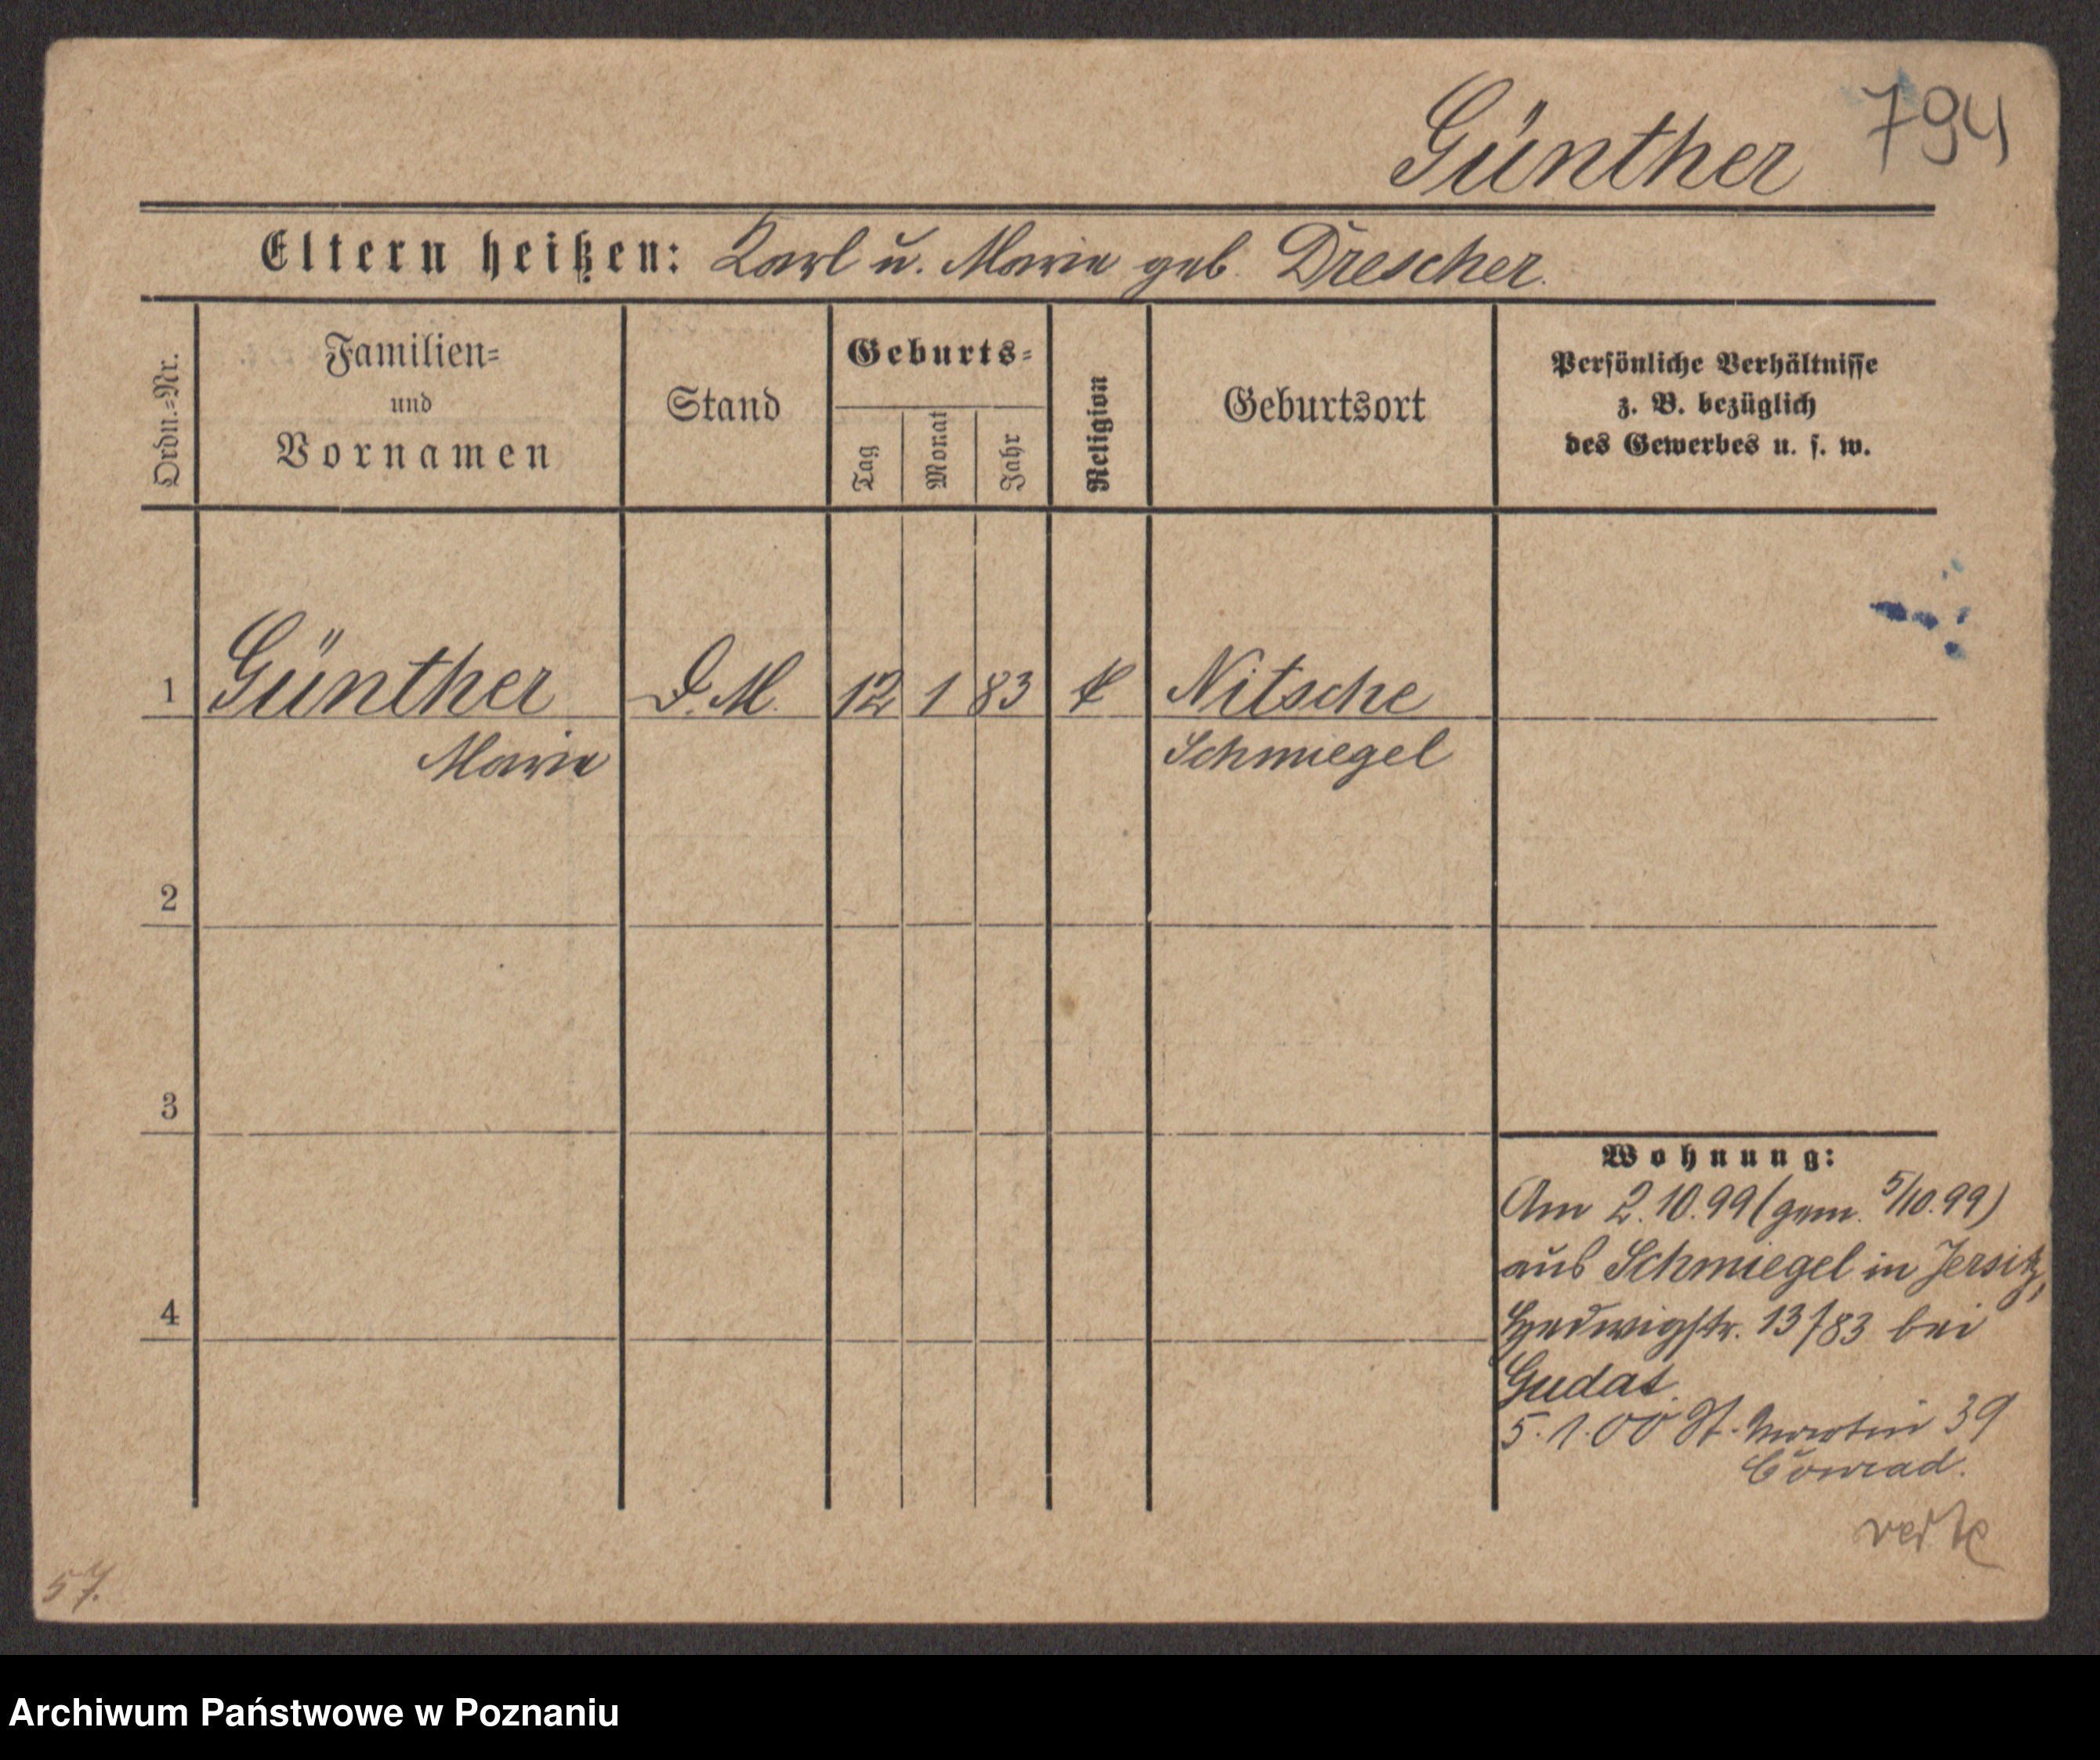 Günther 794
Eltern heißen: Karl u. Marie geb. Drescher.
Ordn.=Nr.
Familien=
und
Vornamen
Stand
Geburts=
Tag
Monat
Jahr
Religion
Geburtsort
Persönliche Verhältnisse
z. B. bezüglich
des Gewerbes u. s. w.
1 Günther D. M. 12 1 83 k Nitsche
Marie Schmiegel
2
3
Wohnung:
Am 2.10.99 (gem. 5/10.99)
aus Schmiegel in Jersitz,
4
Hedwigstr. 13/83 bei
Gudat.
5.1.00 St. Martin 39
Conrad.
57.
Archiwum Państwowe w Poznaniu